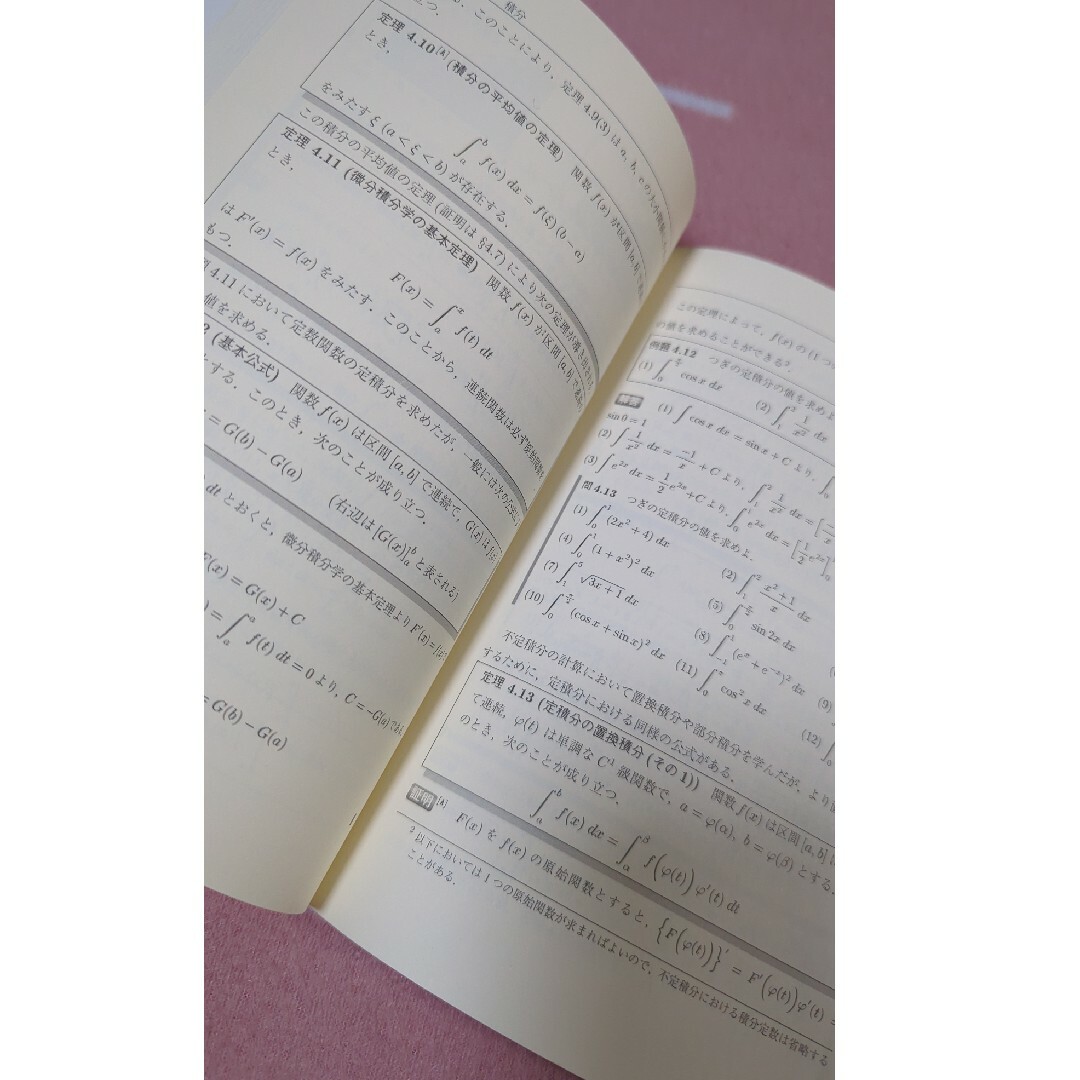 積分
このことにより，定理 4.9(3) は a, b, c の大小関係
立つ．
定理 4.10[A] (積分の平均値の定理) 関数 f(x) が区間 [a, b]
とき，
∫_a^b f(x) dx = f(ξ) (b − a)
をみたす ξ (a < ξ < b) が存在する．
この積分の平均値の定理 (証明は §4.7) により次の定理が導き出される
定理 4.11 (微分積分学の基本定理) 関数 f(x) が区間 [a, b] で連続
とき，
F(x) = ∫_a^x f(t) dt
は F′(x) = f(x) をみたす．このことから，連続関数は必ず原始関数を
もつ．
4.11 において定数関数の定積分を求めたが，一般には次の
値を求める．
(基本公式) 関数 f(x) は区間 [a, b] で連続で，G(x) は
とする．このとき，次のことが成り立つ．
= G(b) − G(a) (右辺は [G(x)]_a^b と表される)
dt とおくと，微分積分学の基本定理より F′(x) = f(x)
F(x) = G(x) + C
= ∫_a^a f(t) dt = 0 より，C = −G(a)
= G(b) − G(a)
この定理によって，f(x) の (1 つ
の値を求めることができる²．
例題 4.12 つぎの定積分の値を求めよ
(1) ∫_0^{π/2} cos x dx (2) ∫_1^2 1/x² dx
解答 (1) ∫ cos x dx = sin x + C より，∫_0
sin 0 = 1
(2) ∫ 1/x² dx = −1/x + C より，∫_1^2 1/x² dx = [
(3) ∫ e^{2x} dx = 1/2 e^{2x} + C より，∫_0^1 e^{2x} dx = [1/2 e^{2x}]_0
問 4.13 つぎの定積分の値を求めよ．
(1) ∫_0^1 (2x² + 4) dx (2) ∫_1^2 (x² + 1)/x dx
(4) ∫_0^1 (1 + x²)² dx (5) ∫_0^{π/2} sin 2x dx
(7) ∫_1^5 √(3x + 1) dx (8) ∫_{−1}^1 (e^x + e^{−x})² dx (9)
(10) ∫_0^{π/2} (cos x + sin x)² dx (11) ∫_0^π cos² x dx (12) ∫_0
不定積分の計算において置換積分や部分積分を学んだが，より
するために，定積分における同様の公式がある．
定理 4.13 (定積分の置換積分 (その 1)) 関数 f(x) は区間 [a, b]
て連続，φ(t) は単調な C¹ 級関数で，a = φ(α), b = φ(β) とする．
のとき，次のことが成り立つ．
∫_a^b f(x) dx = ∫_α^β f(φ(t)) φ′(t) dt
証明 [A] F(x) を f(x) の原始関数とすると，{F(φ(t))}′ = F′(φ(t))φ′(t) =
² 以下においては 1 つの原始関数が求まればよいので，不定積分における積分定数は省略する
ことがある．